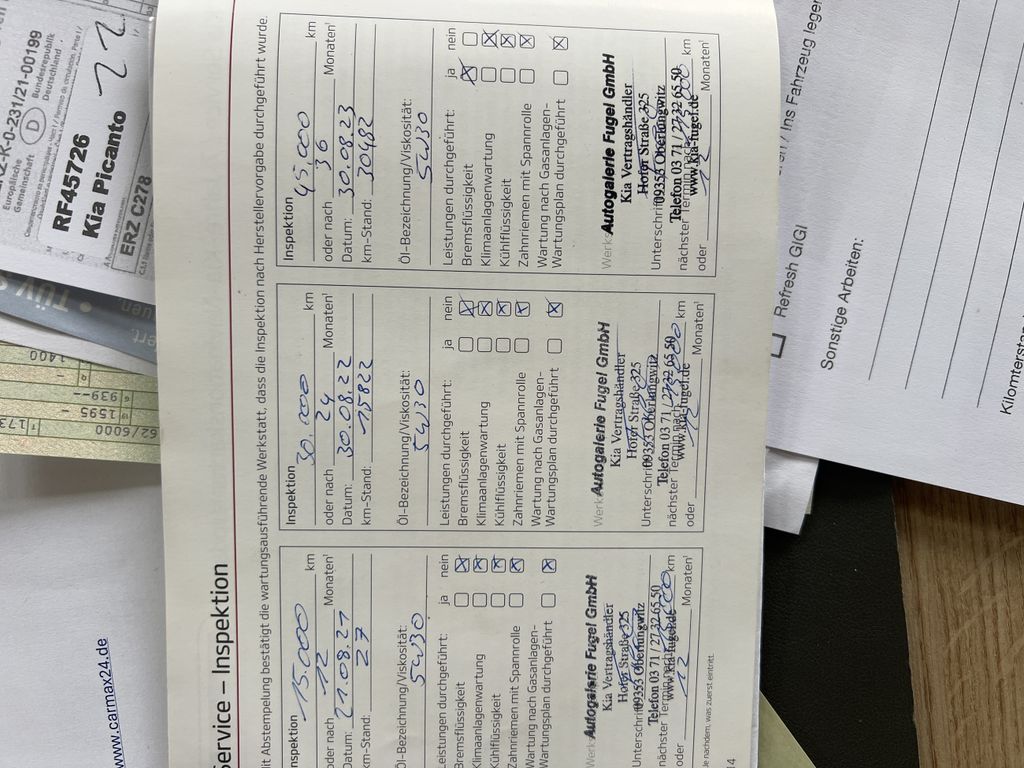 Service – Inspektion
Mit Abstempelung bestätigt die wartungsausführende Werkstatt, dass die Inspektion nach Herstellervorgabe durchgeführt wurde.
Inspektion
15.000 km
oder nach 12 Monaten¹
Datum: 21.08.21
km-Stand: 27
Öl-Bezeichnung/Viskosität:
5W30
Leistungen durchgeführt: ja nein
Bremsflüssigkeit
Klimaanlagenwartung
Kühlflüssigkeit
Zahnriemen mit Spannrolle
Wartung nach Gasanlagen-
Wartungsplan durchgeführt
Autogalerie Fugel GmbH
Kia Vertragshändler
Hofer Straße 325
09353 Oberlungwitz
Telefon 03 71 / 27 32 65 50
www.kia-fugel.de
km
oder 12 Monaten¹
Inspektion
30.000 km
oder nach 24 Monaten¹
Datum: 30.08.22
km-Stand: 15822
Öl-Bezeichnung/Viskosität:
5W30
Leistungen durchgeführt: ja nein
Bremsflüssigkeit
Klimaanlagenwartung
Kühlflüssigkeit
Zahnriemen mit Spannrolle
Wartung nach Gasanlagen-
Wartungsplan durchgeführt
Autogalerie Fugel GmbH
Kia Vertragshändler
Hofer Straße 325
09353 Oberlungwitz
Telefon 03 71 / 27 32 65 50
www.kia-fugel.de
km
oder 12 Monaten¹
Inspektion
45.000 km
oder nach 36 Monaten¹
Datum: 30.08.23
km-Stand: 30482
Öl-Bezeichnung/Viskosität:
5W30
Leistungen durchgeführt: ja nein
Bremsflüssigkeit
Klimaanlagenwartung
Kühlflüssigkeit
Zahnriemen mit Spannrolle
Wartung nach Gasanlagen-
Wartungsplan durchgeführt
Autogalerie Fugel GmbH
Kia Vertragshändler
Hofer Straße 325
09353 Oberlungwitz
Telefon 03 71 / 27 32 65 50
www.kia-fugel.de
km
oder 12 Monaten¹
Je nachdem, was zuerst eintritt.
14
www.carmax24.de
Z-K-0-231/21-00199
Europäische Gemeinschaft
D
Bundesrepublik Deutschland
RF45726
Kia Picanto
ERZ C278
TÜV
62/6000
1595
939--
1400
173
/ Ins Fahrzeug legen
Refresh GiGi
Sonstige Arbeiten: